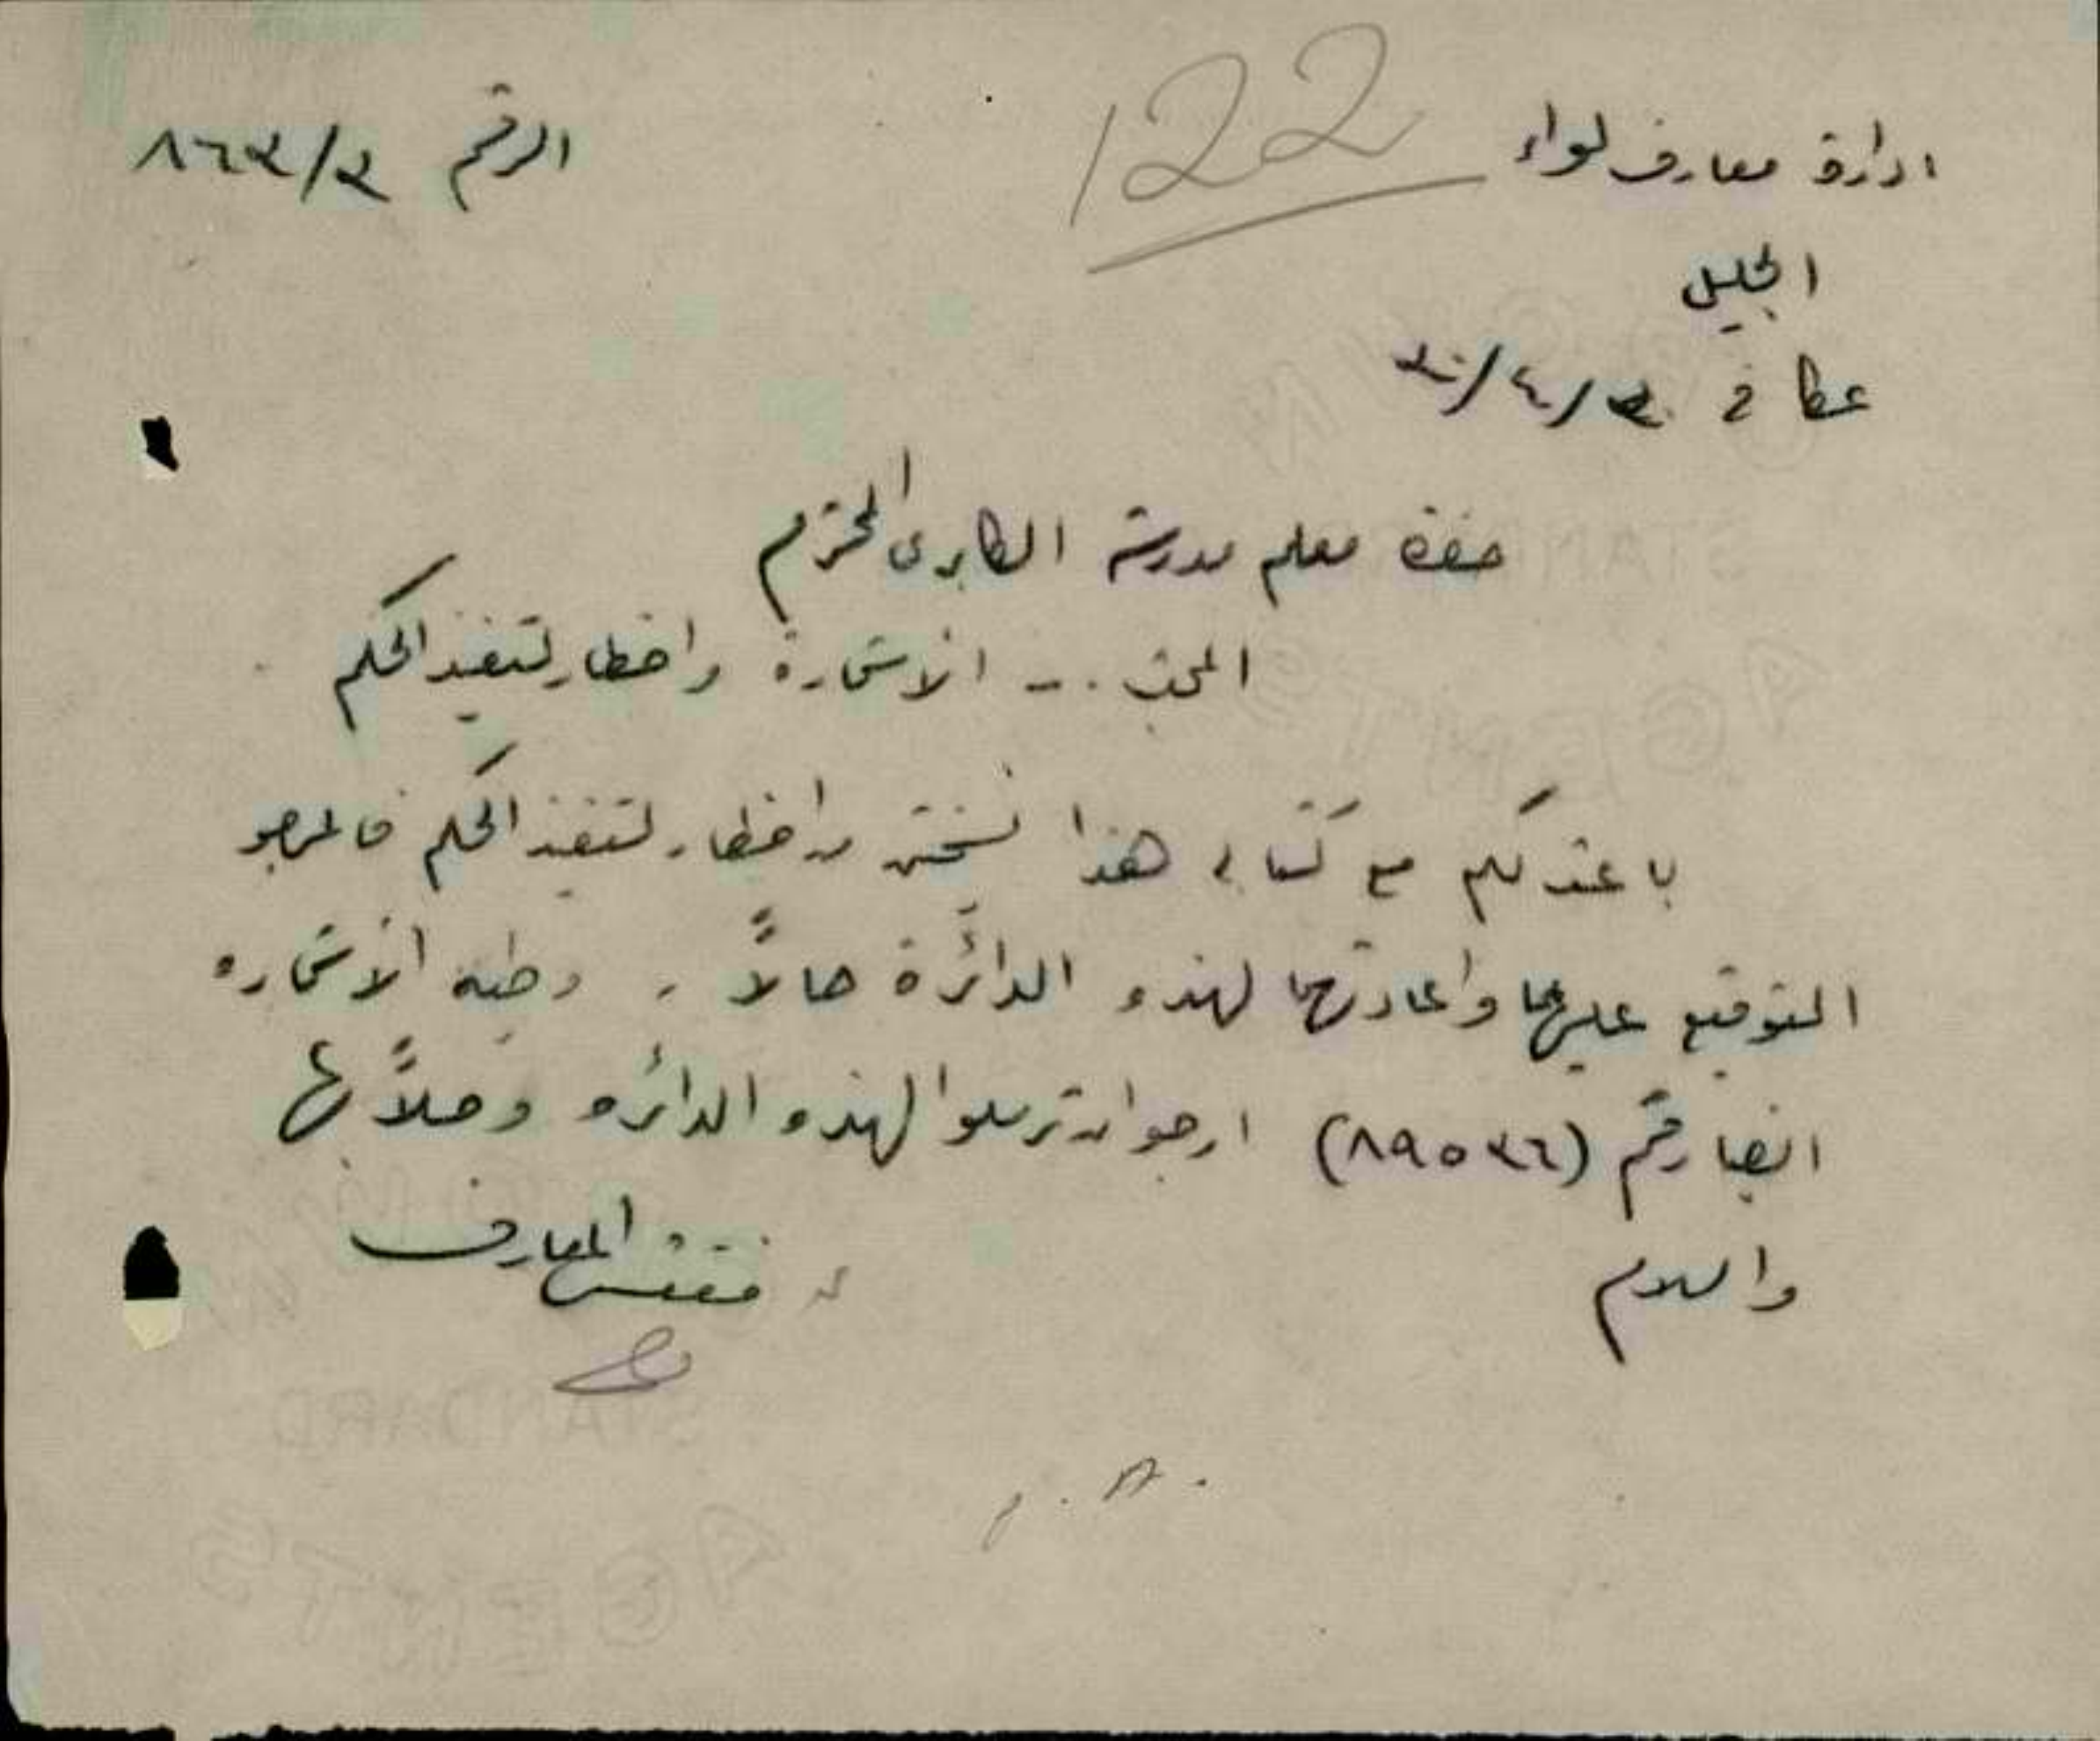 122
ادارة معارف لواء
الرقم ٨٦٣/٣
الجليل
عكا في ٣/٤/٣٠
حضرة معلم مدرسة الكابري المحترم
المبحث :- الاستمارة واخطار لتنفيذ الحكم
باعث لكم مع كتابي هذا نسختين من اخطار لتنفيذ الحكم فالمرجو
التوقيع عليهما واعادتهما لهذه الدائرة حالاً . وطيه الاستماره
ايضا رقم (٨٩٥٣٦) ارجو ان ترسلوا لهذه الدائره وصلاً بها
والسلام
مفتش المعارف